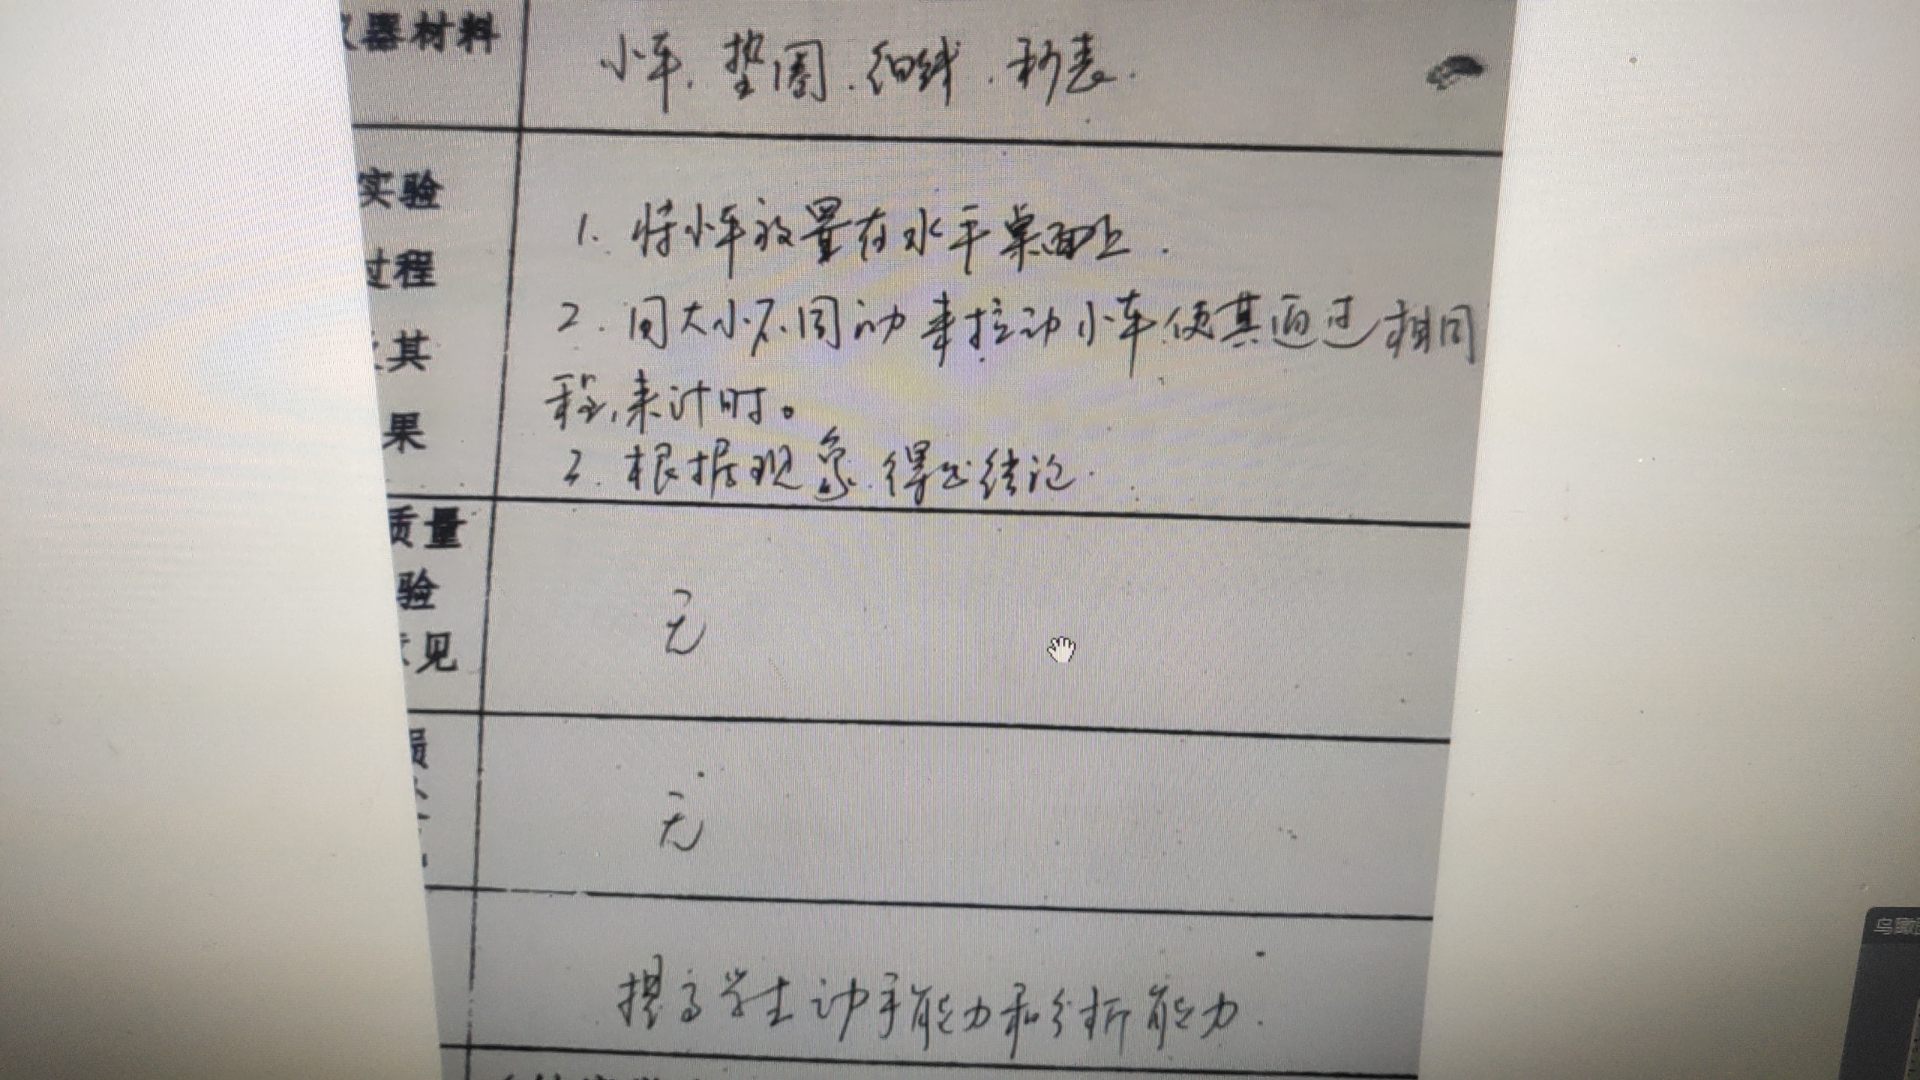 器材料 小车.垫圈.细线.秒表.
实验
过程
其
果
1.将小车放置在水平桌面上.
2.用大小不同的力来拉动小车使其通过相同
程,来计时。
3.根据现象.得出结论.
质量
验
见
无
损
无
提高学生动手能力和分析能力.
鸟瞰